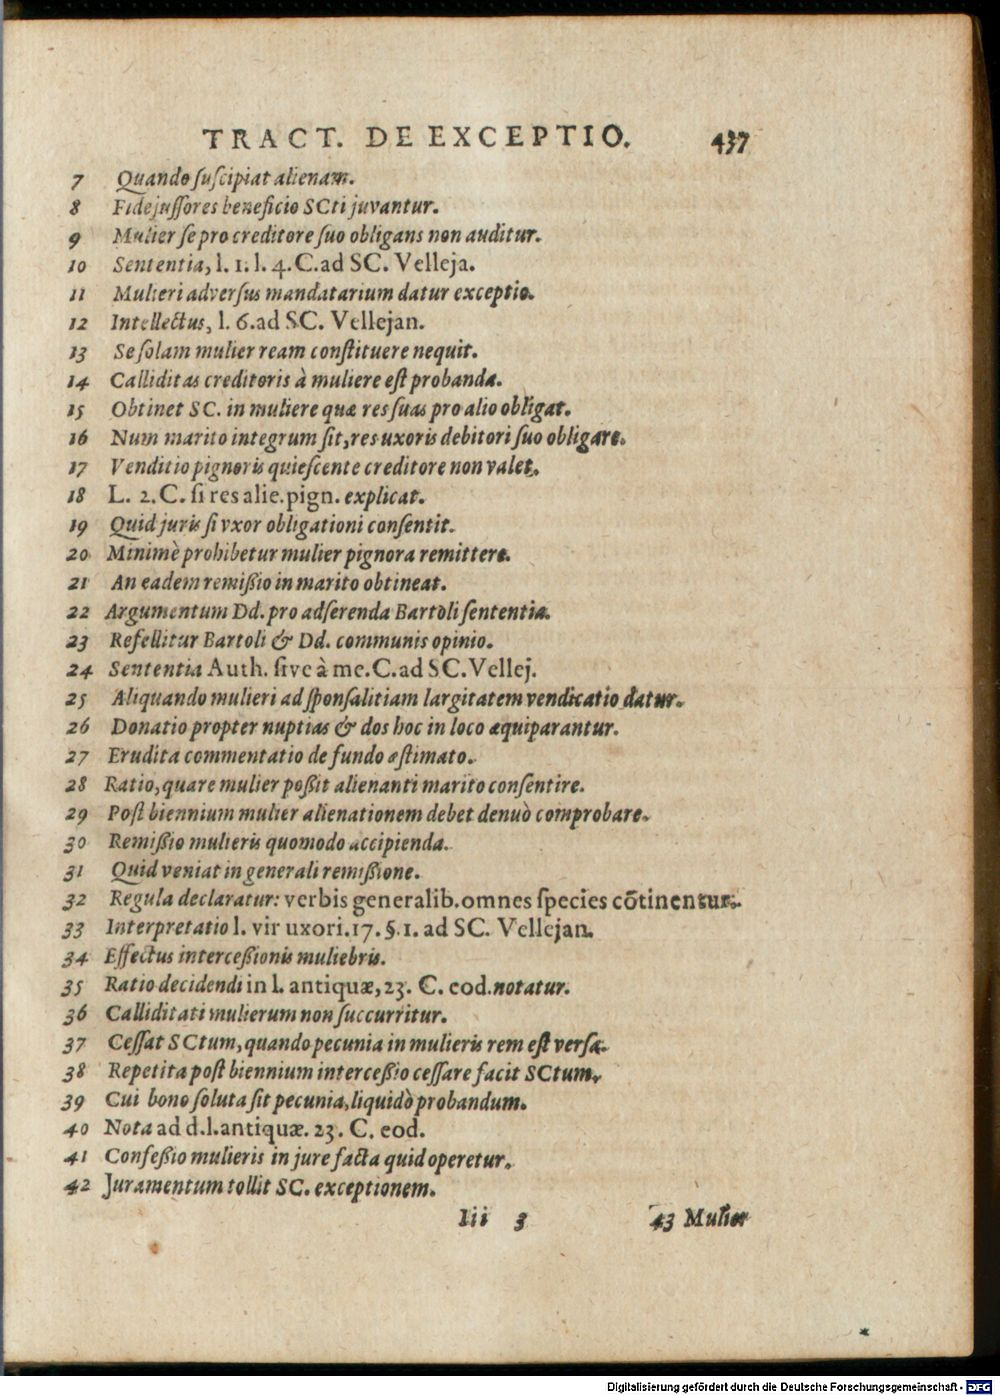 TRACT. DE EXCEPTIO. 437
7 Quando suscipiat alienam.
8 Fidejussores beneficio SCti juvantur.
9 Mulier se pro creditore suo obligans non auditur.
10 Sententia, l. 1. l. 4. C. ad SC. Velleja.
11 Mulieri adversus mandatarium datur exceptio.
12 Intellectus, l. 6. ad SC. Vellejan.
13 Se solam mulier ream constituere nequit.
14 Calliditas creditoris à muliere est probanda.
15 Obtinet SC. in muliere quæ res suas pro alio obligat.
16 Num marito integrum sit, res uxoris debitori suo obligare.
17 Venditio pignoris quiescente creditore non valet.
18 L. 2. C. si res alie. pign. explicat.
19 Quid juris si vxor obligationi consentit.
20 Minimè prohibetur mulier pignora remittere.
21 An eadem remißio in marito obtineat.
22 Argumentum Dd. pro adserenda Bartoli sententia.
23 Refellitur Bartoli & Dd. communis opinio.
24 Sententia Auth. sive à me. C. ad SC. Vellej.
25 Aliquando mulieri ad sponsalitiam largitatem vendicatio datur.
26 Donatio propter nuptias & dos hoc in loco æquiparantur.
27 Erudita commentatio de fundo æstimato.
28 Ratio, quare mulier poßit alienanti marito consentire.
29 Post biennium mulier alienationem debet denuò comprobare.
30 Remißio mulieris quomodo accipienda.
31 Quid veniat in generali remißione.
32 Regula declaratur: verbis generalib. omnes species cõtinentur.
33 Interpretatio l. vir uxori. 17. §. 1. ad SC. Vellejan.
34 Effectus interceßionis muliebris.
35 Ratio decidendi in l. antiquæ, 23. C. eod. notatur.
36 Calliditati mulierum non succurritur.
37 Cessat SCtum, quando pecunia in mulieris rem est versa.
38 Repetita post biennium interceßio cessare facit SCtum.
39 Cui bono soluta sit pecunia, liquidò probandum.
40 Nota ad d. l. antiquæ. 23. C. eod.
41 Confeßio mulieris in jure facta quid operetur.
42 Juramentum tollit SC. exceptionem.
Iii 3 43 Mulier
Digitalisierung gefördert durch die Deutsche Forschungsgemeinschaft - DFG